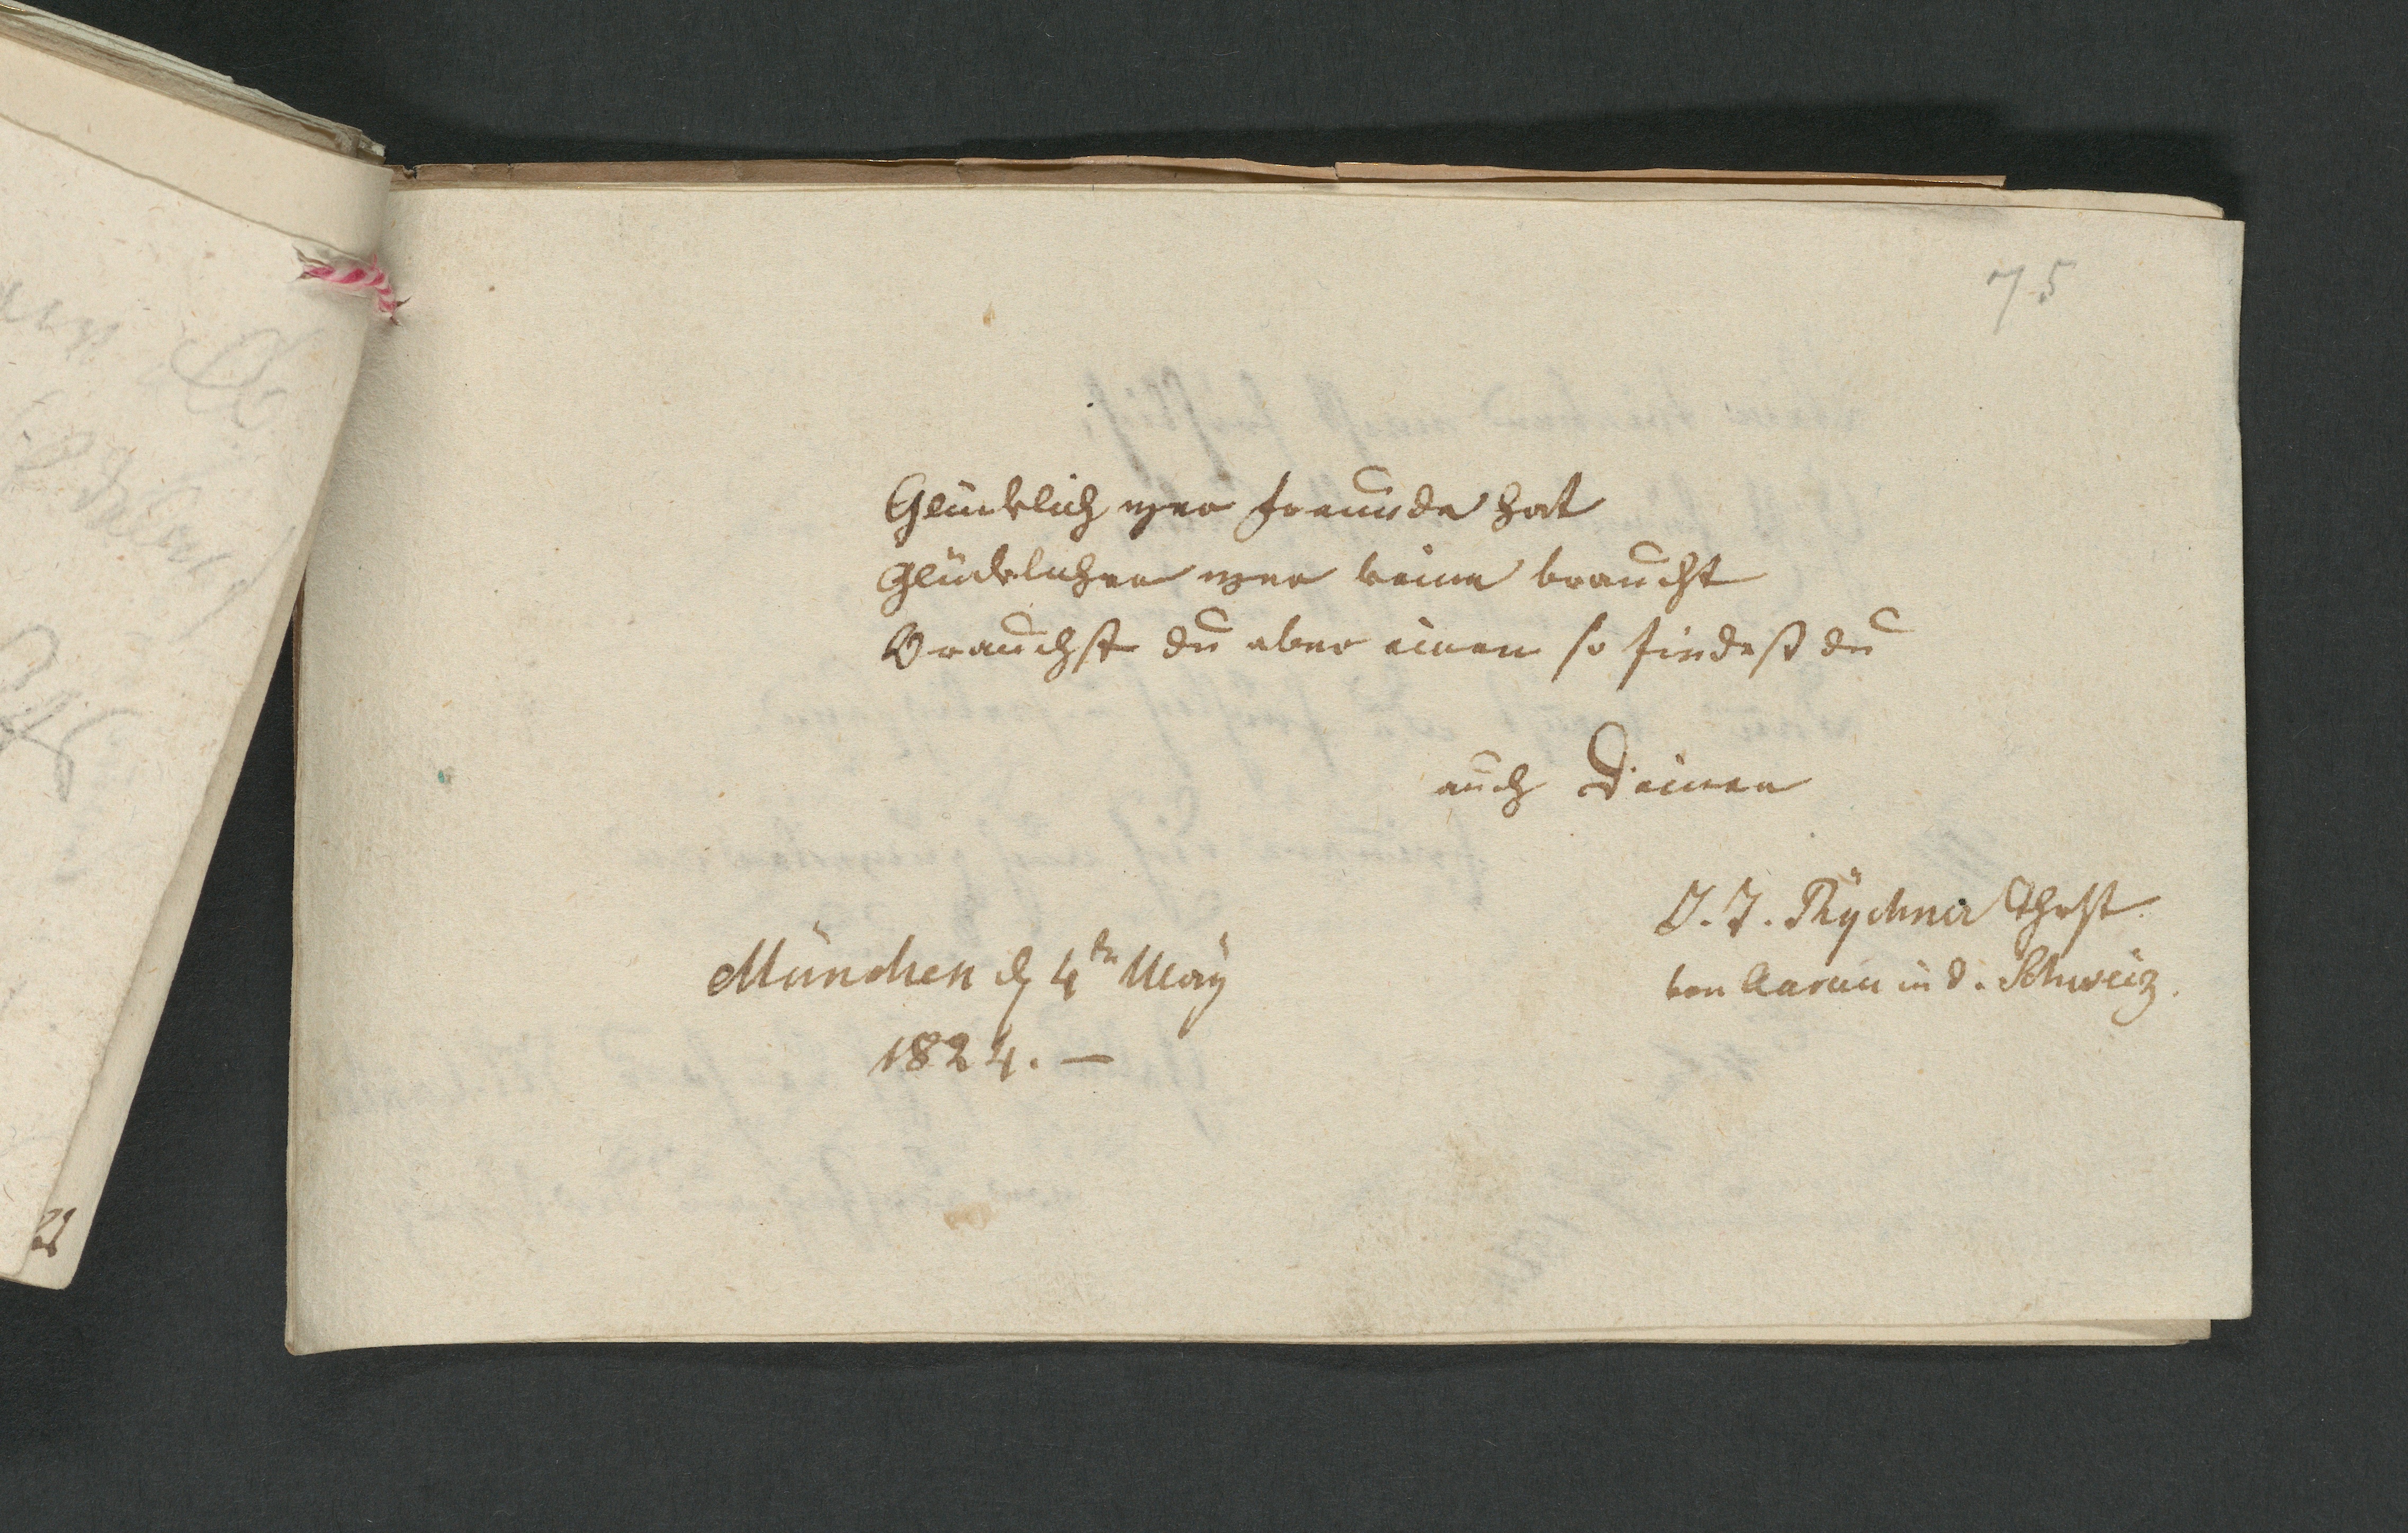 75
Glücklich wer Freunde hat
Glücklicher wer keine braucht
Brauchst du aber einen so findest du
auch Deinen
J. J. Rychner Thrzt.
von Aarau in d. Schweiz.
München d 4tn May
1824. —